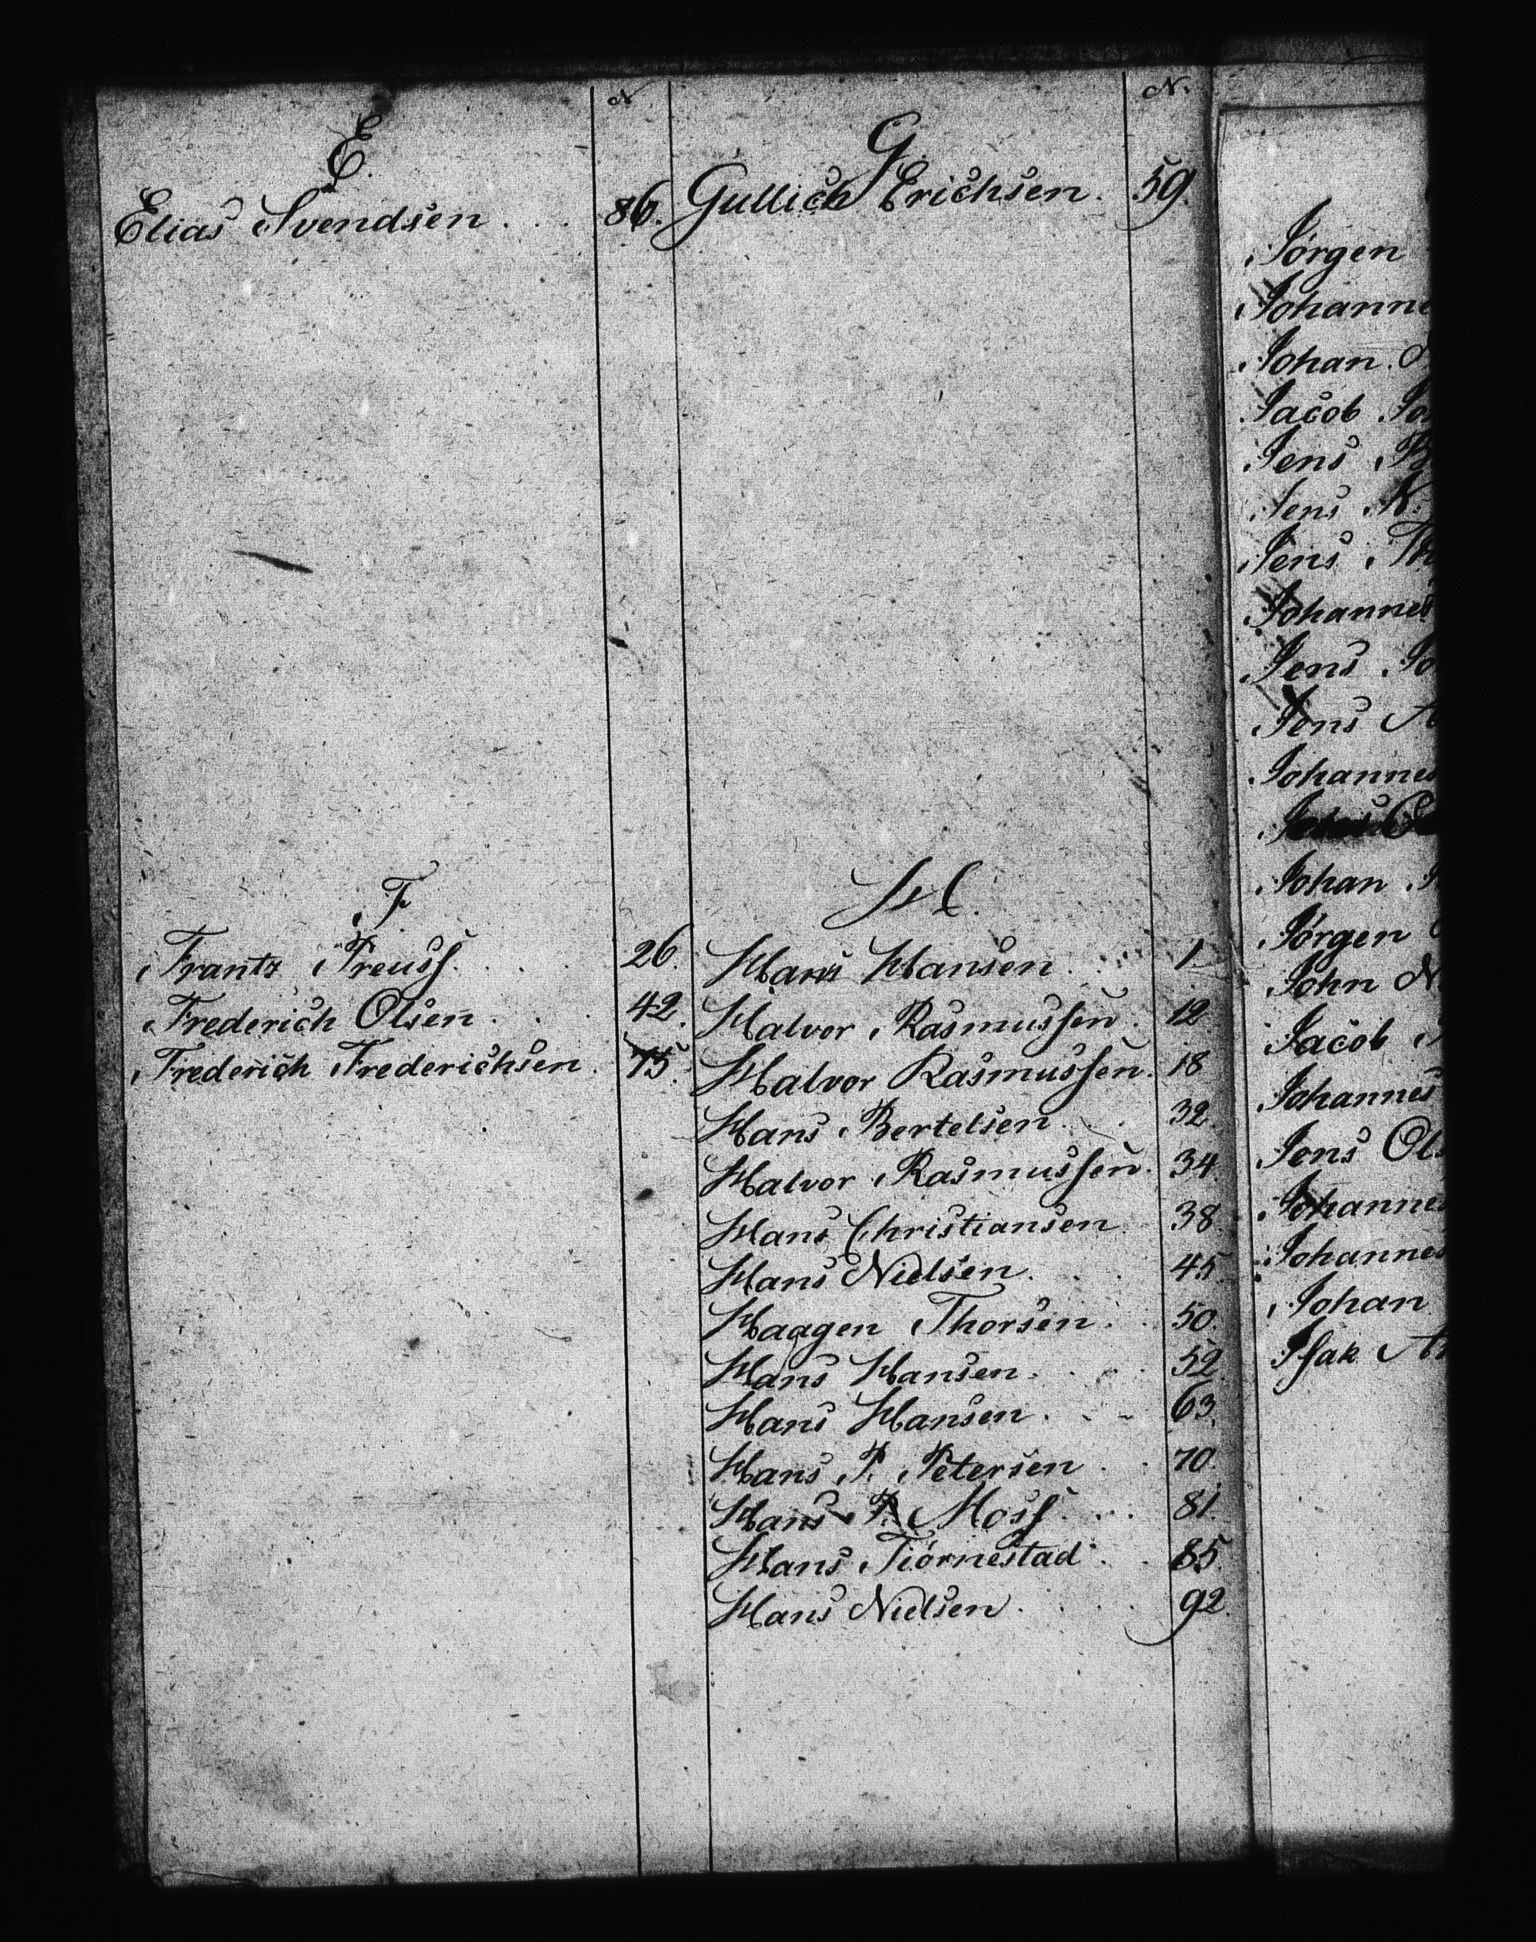 N
E.
Elias Svendsen . . . 86.
F
Frantz Preuss . . . 26.
Frederich Olsen . . . 42.
Frederich Frederichsen . 75.
N.
G
Gullich Erichsen . 59.
H.
Hans Hansen . . . 1
Halvor Rasmussen . 12
Halvor Rasmussen . 18
Hans Bertelsen . . 32.
Halvor Rasmussen . 34.
Hans Christiansen 38.
Hans Nielsen . . . 45
Haagen Thorsen . . 50.
Hans Hansen . . . 52.
Hans Hansen . . . 63.
Hans P. Petersen . . 70
Hans P. Moss . . . 81.
Hans Tiörnestad . . 85.
Hans Nielsen . . . . 92.
Jørgen
Johanne
Johan
Jacob
Jens
Jens N.
Jens Th
Johannes
Jens Jo
Jens A
Johannes
Johan
Jørgen
John N
Jacob
Johannes
Jens Ols
Johannes
Johannes
Johan
Isak An